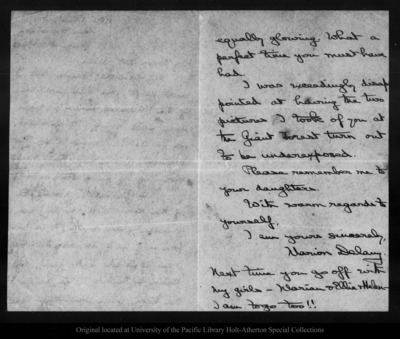 equally glowing. What a
perfect time you must have
had.
I was exceedingly disap
pointed at having the two
pictures I took of you at
the Giant Forest turn out
to be underexposed.
Please remember me to
your daughters.
With warm regards to
yourself,
I am yours sincerely,
Marion Delany.
Next time you go off with
my girls - Marian & Eddie & Helen
I am to go too!!
Original located at University of the Pacific Library Holt-Atherton Special Collections